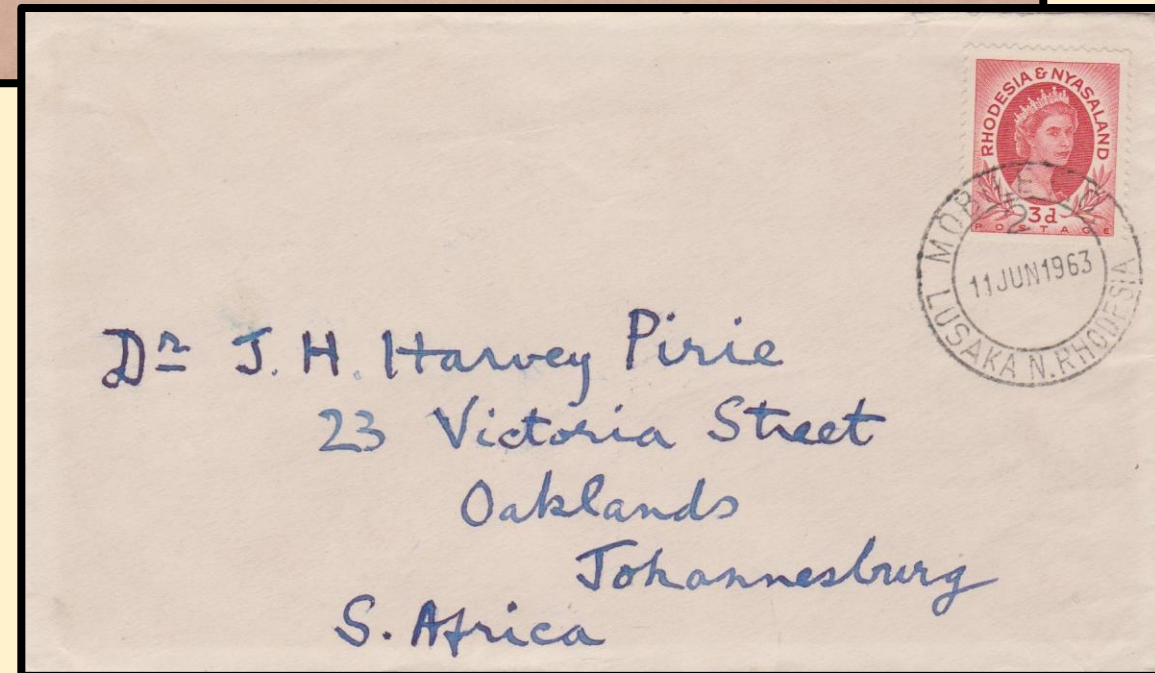 RHODESIA & NYASALAND
3d
POSTAGE
MOBILE
2
11JUN1963
LUSAKA N.RHODESIA
Dr J. H. Harvey Pirie
23 Victoria Street
Oaklands
Johannesburg
S. Africa